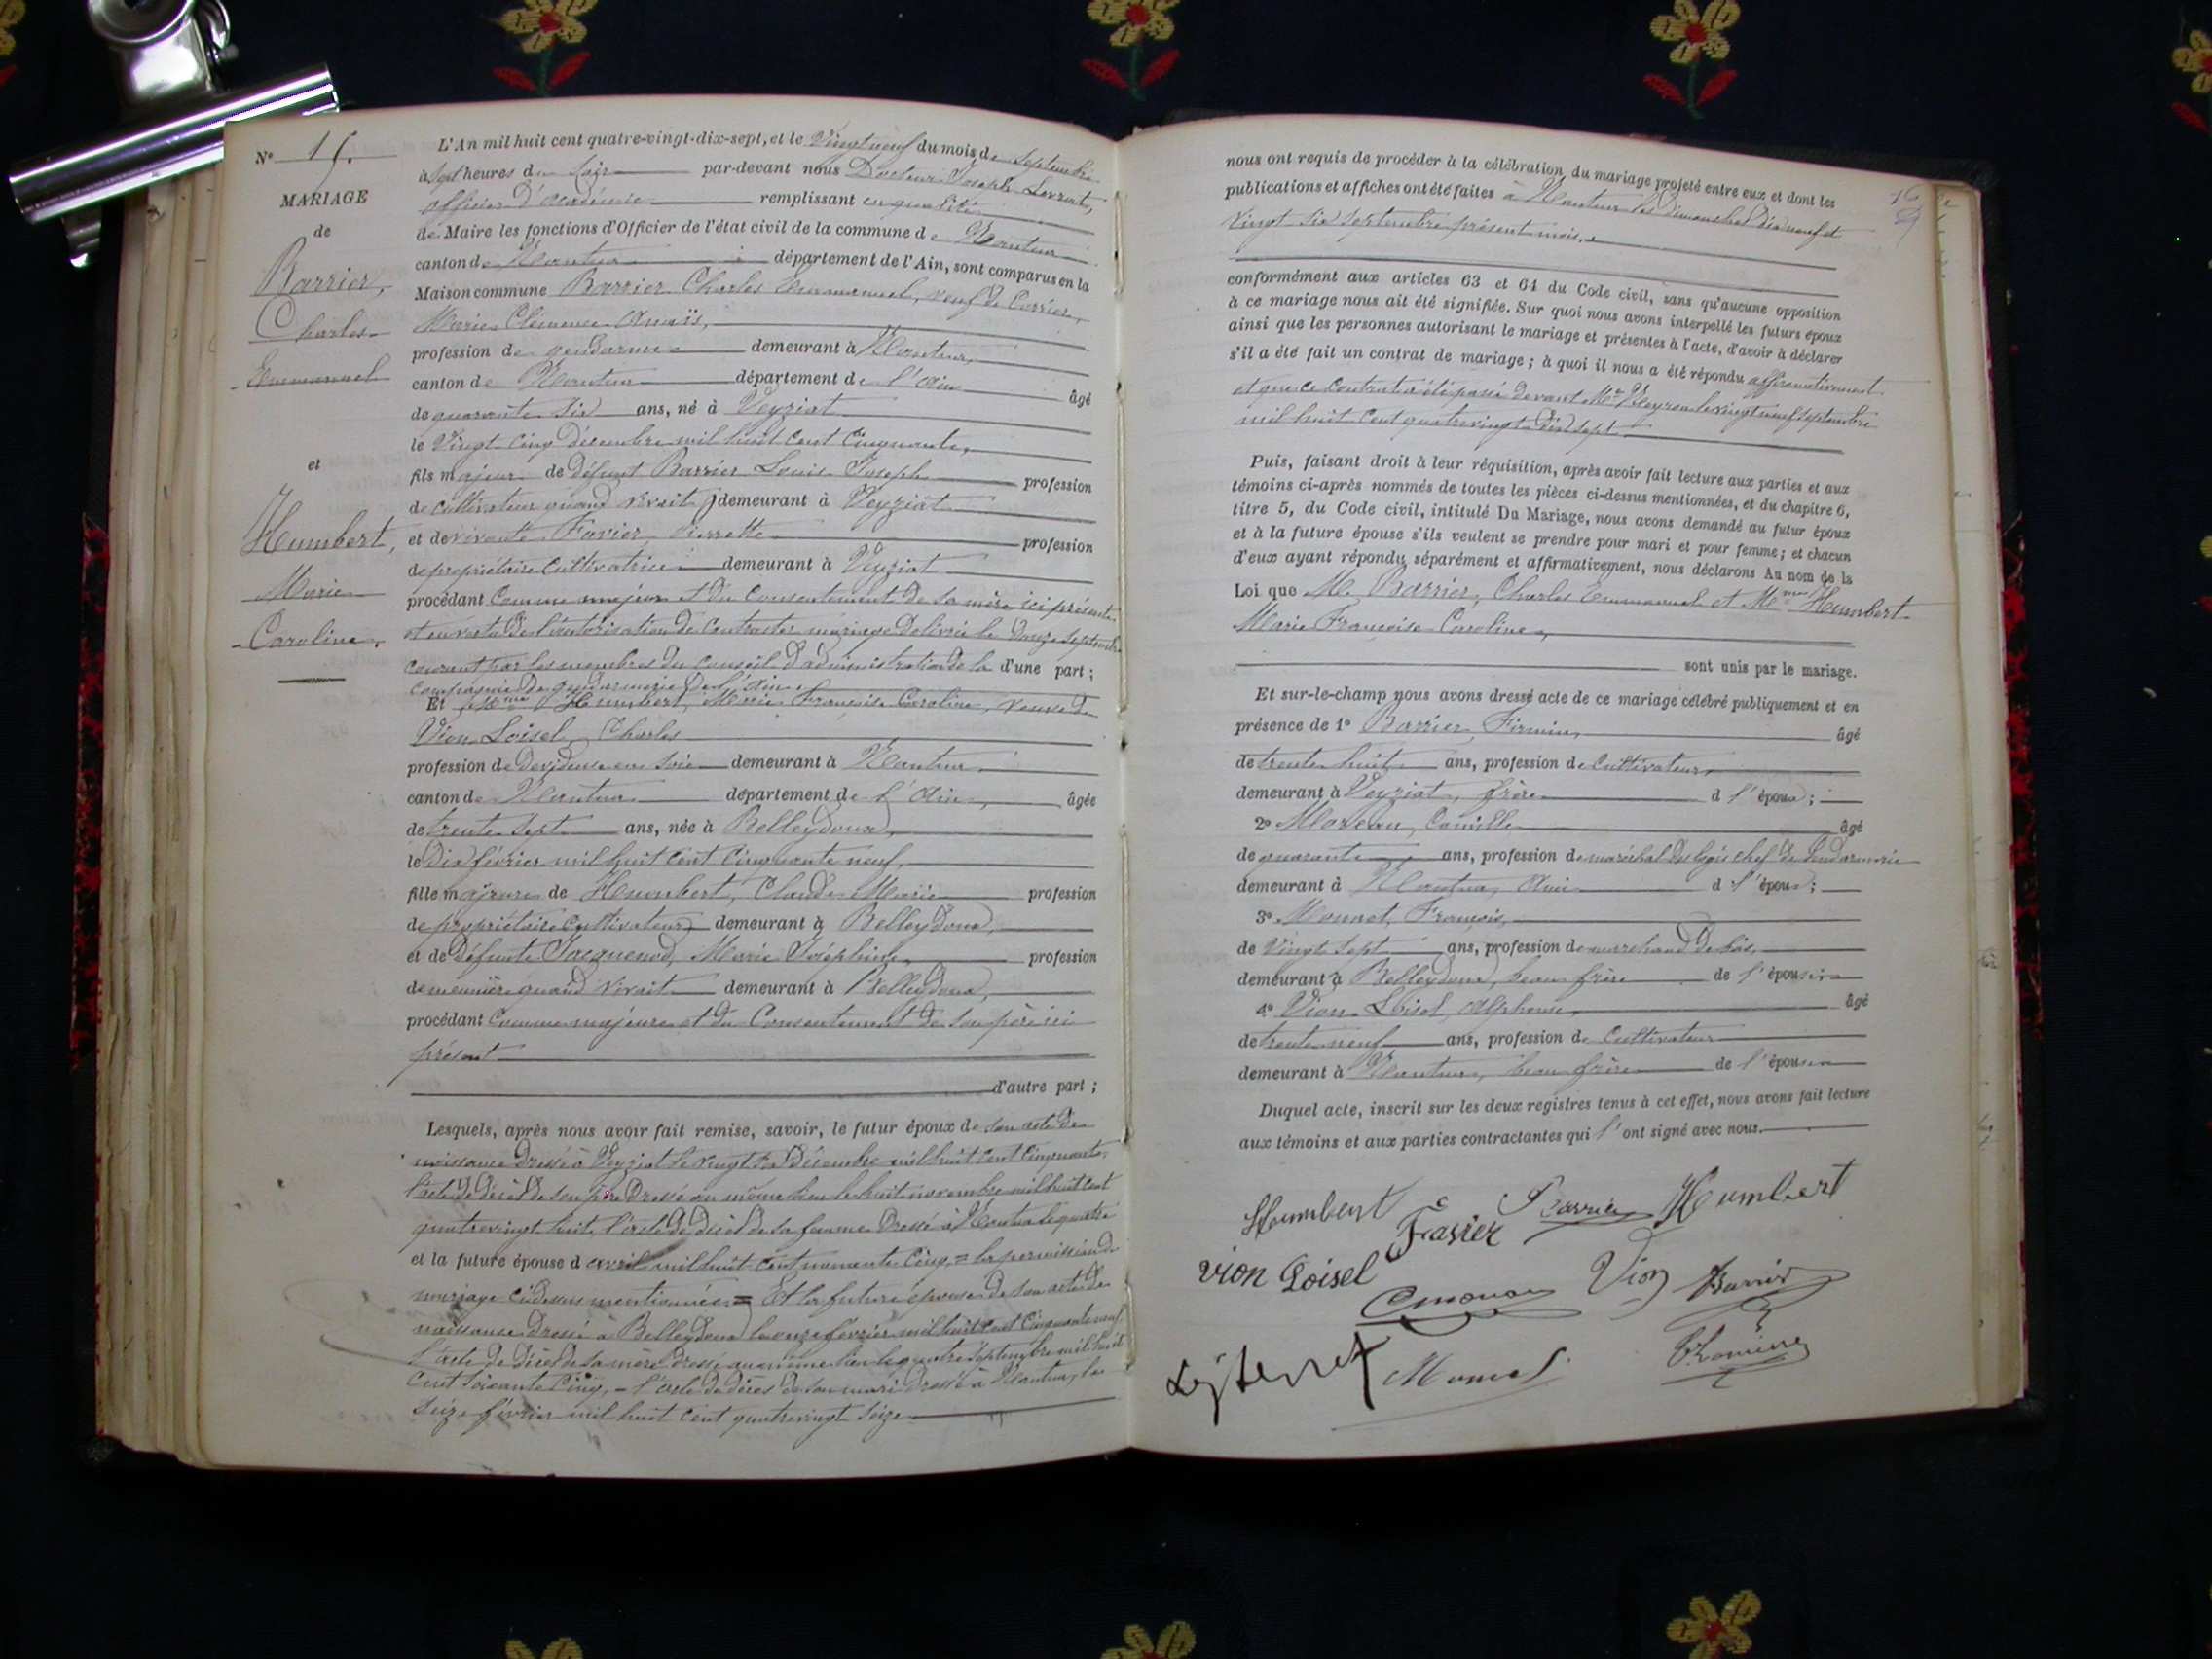 N° 15.
MARIAGE
de
Barrier,
Charles
Emmanuel
et
Humbert,
Marie
Caroline.
L'An mil huit cent quatre-vingt-dix-sept, et le vingt neuf du mois de septembre
à sept heures du soir par-devant nous Docteur Joseph
officier d'académie remplissant en qualité
de Maire les fonctions d'Officier de l'état civil de la commune de Nantua
canton de Nantua département de l'Ain, sont comparus en la
Maison commune Barrier Charles Emmanuel, veuf de
Marie Clémence Anaïs,
profession de gendarme demeurant à Nantua,
canton de Nantua département de l'Ain âgé
de quarante six ans, né à Veyziat
le vingt cinq décembre mil huit cent cinquante,
fils majeur de défunt Barrier Louis Joseph profession
de cultivateur quand vivait demeurant à Veyziat
et de vivante Favier, Pierrette profession
de propriétaire cultivatrice demeurant à Veyziat
procédant comme majeur et du consentement de sa mère ici présente
et en vertu de l'autorisation de contracter mariage délivrée le douze septembre
courant par les membres du conseil d'administration de la d'une part;
compagnie de gendarmerie de l'Ain.
Et Mme Humbert, Marie Françoise Caroline, veuve de
Vion Loisel, Charles
profession de dévideuse en soie demeurant à Nantua,
canton de Nantua département de l'Ain, âgée
de trente sept ans, née à Belleydoux,
le dix février mil huit cent cinquante neuf,
fille majeure de Humbert, Claude Marie profession
de propriétaire cultivateur demeurant à Belleydoux,
et de défunte Jacquenod, Marie Joséphine, profession
de meunière quand vivait demeurant à Belleydoux,
procédant comme majeure et du consentement de son père ici
présent
d'autre part;
Lesquels, après nous avoir fait remise, savoir, le futur époux de son acte de
naissance dressé à Veyziat le vingt six décembre mil huit cent cinquante,
l'acte de décès de son père dressé au même lieu le huit novembre mil huit cent
quatrevingt huit, l'acte de décès de sa femme dressé à Nantua le quatre
et la future épouse d avril mil huit cent nonante cinq = la permission de
mariage ci dessus mentionnée = Et la future épouse de son acte de
naissance dressé à Belleydoux le onze février mil huit cent cinquante neuf
l'acte de décès de sa mère dressé au même lieu le quatre septembre mil huit
cent soixante cinq, - l'acte de décès de son mari dressé à Nantua, le
seize février mil huit cent quatrevingt seize
nous ont requis de procéder à la célébration du mariage projeté entre eux et dont les
publications et affiches ont été faites à Nantua les dimanches dix neuf et
vingt six septembre présent mois.
conformément aux articles 63 et 64 du Code civil, sans qu'aucune opposition
à ce mariage nous ait été signifiée. Sur quoi nous avons interpellé les futurs époux
ainsi que les personnes autorisant le mariage et présentes à l'acte, d'avoir à déclarer
s'il a été fait un contrat de mariage; à quoi il nous a été répondu affirmativement
et que ce contrat a été passé devant Me le vingt neuf septembre
mil huit cent quatrevingt dix sept
Puis, faisant droit à leur réquisition, après avoir fait lecture aux parties et aux
témoins ci-après nommés de toutes les pièces ci-dessus mentionnées, et du chapitre 6,
titre 5, du Code civil, intitulé Du Mariage, nous avons demandé au futur époux
et à la future épouse s'ils veulent se prendre pour mari et pour femme; et chacun
d'eux ayant répondu séparément et affirmativement, nous déclarons Au nom de la
Loi que M. Barrier, Charles Emmanuel et Mme Humbert
Marie Françoise Caroline,
sont unis par le mariage.
Et sur-le-champ nous avons dressé acte de ce mariage célébré publiquement et en
présence de 1° Barrier, Firmin, âgé
de trente huit ans, profession de cultivateur,
demeurant à Veyziat, frère d l'époux;
2° Moreau, Camille âgé
de quarante ans, profession de maréchal des logis chef de gendarmerie
demeurant à Nantua, ami d l'époux;
3° Monnet, François,
de vingt sept ans, profession de marchand de bois,
demeurant à Belleydoux, beau frère de l'épouse
4° Vion Loisel, Alphonse, âgé
de trente neuf ans, profession de cultivateur
demeurant à Nantua, beau frère de l'épouse
Duquel acte, inscrit sur les deux registres tenus à cet effet, nous avons fait lecture
aux témoins et aux parties contractantes qui l'ont signé avec nous.
Humbert Favier Barrier Humbert
Vion Loisel Vion Barrier